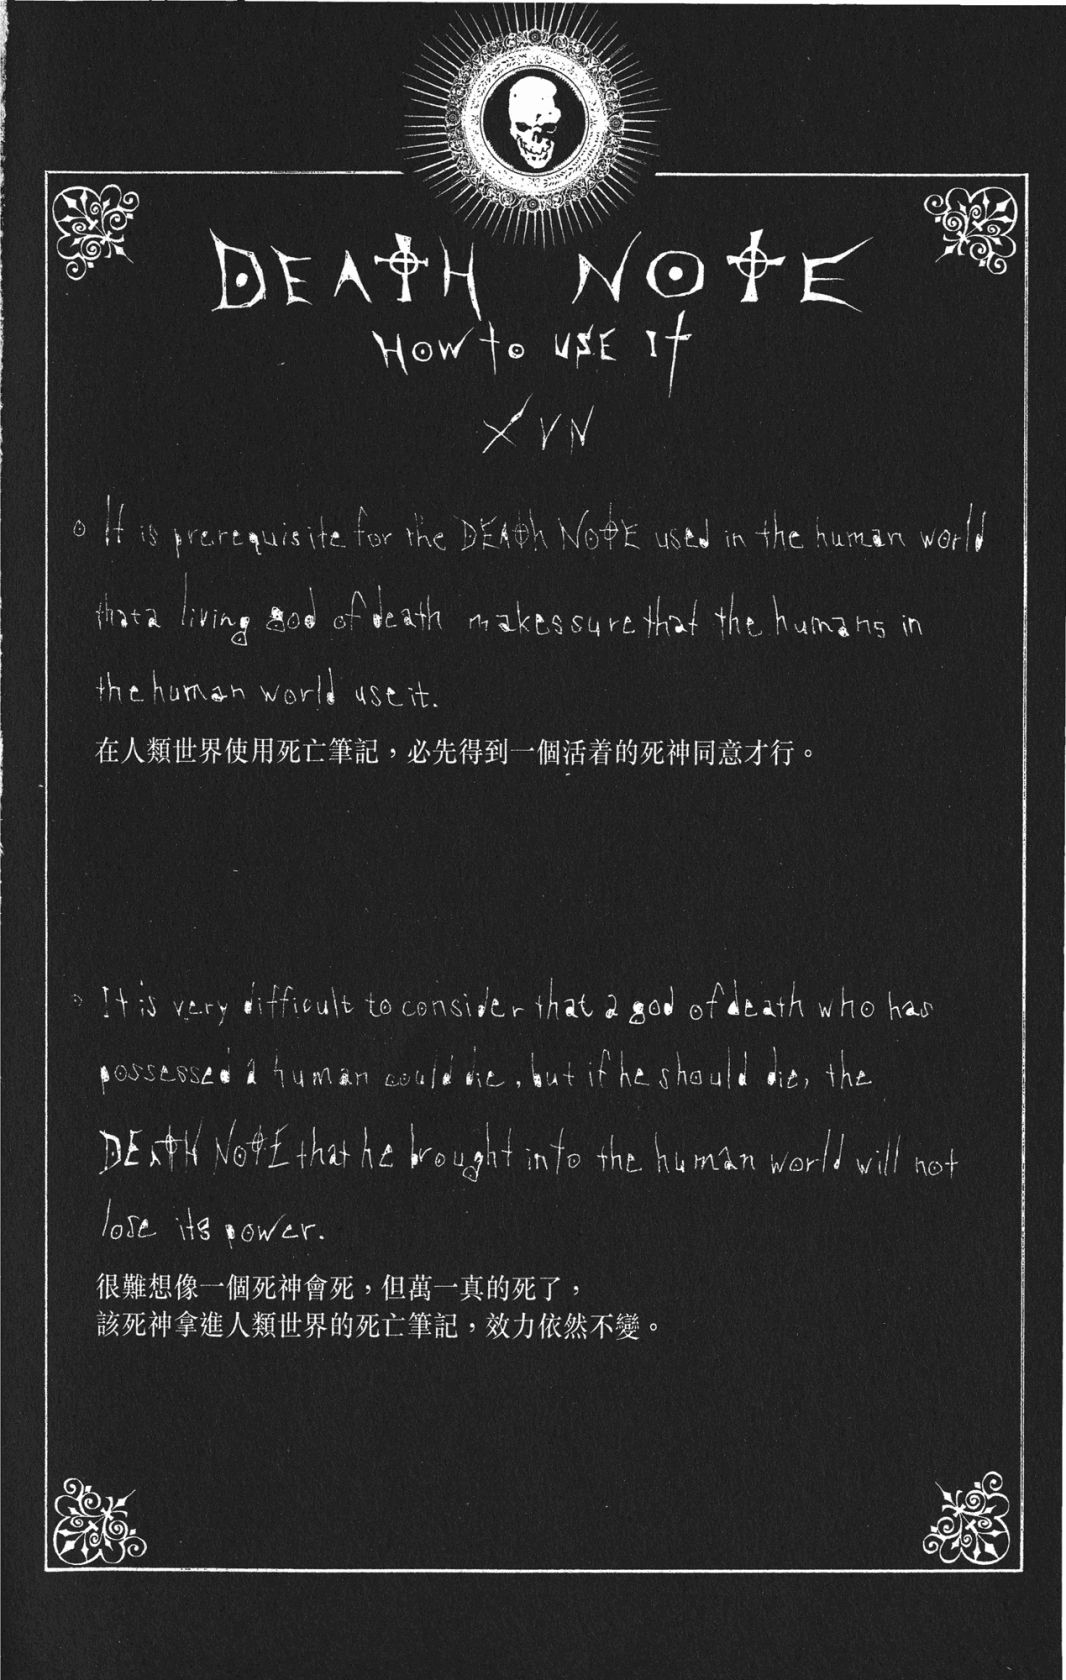 DEATH NOTE
HOW TO USE IT
XVII
It is prerequisite for the DEATH NOTE used in the human world
that a living god of death makes sure that the humans in
the human world use it.
在人類世界使用死亡筆記，必先得到一個活着的死神同意才行。
It is very difficult to consider that a god of death who has
possessed a human could die, but if he should die, the
DEATH NOTE that he brought into the human world will not
lose its power.
很難想像一個死神會死，但萬一真的死了，
該死神拿進人類世界的死亡筆記，效力依然不變。